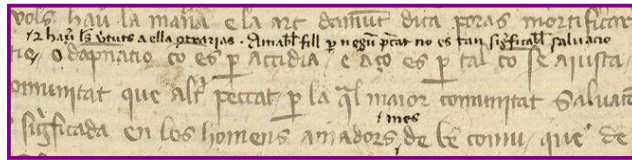 vols hau la mana e la art damut dita poras mortificar
e hau les vtuts a ella contrarias . Amabl fill p negu pcat no es tan significabl saluacio
tio o dapnatio co es p accidia , e aço es p tal co se aiusta
omunitat que altr peccat p la ql maior comunitat saluatio
significada en los homens amadors de be comu , que de
mes